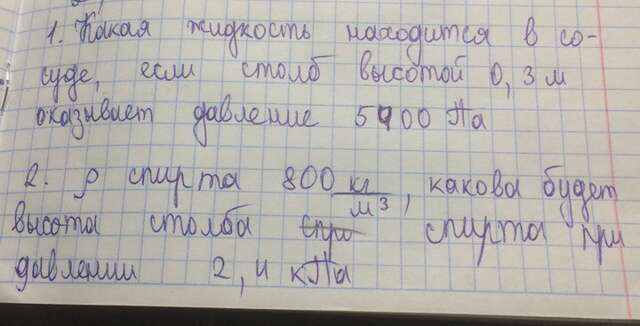 1. Какая жидкость находится в со-
суде, если столб высотой 0,3 м
оказывает давление 5400 Па
2. ρ спирта 800 кг/м³, какова будет
высота столба спи спирта при
давлении 2,4 кПа